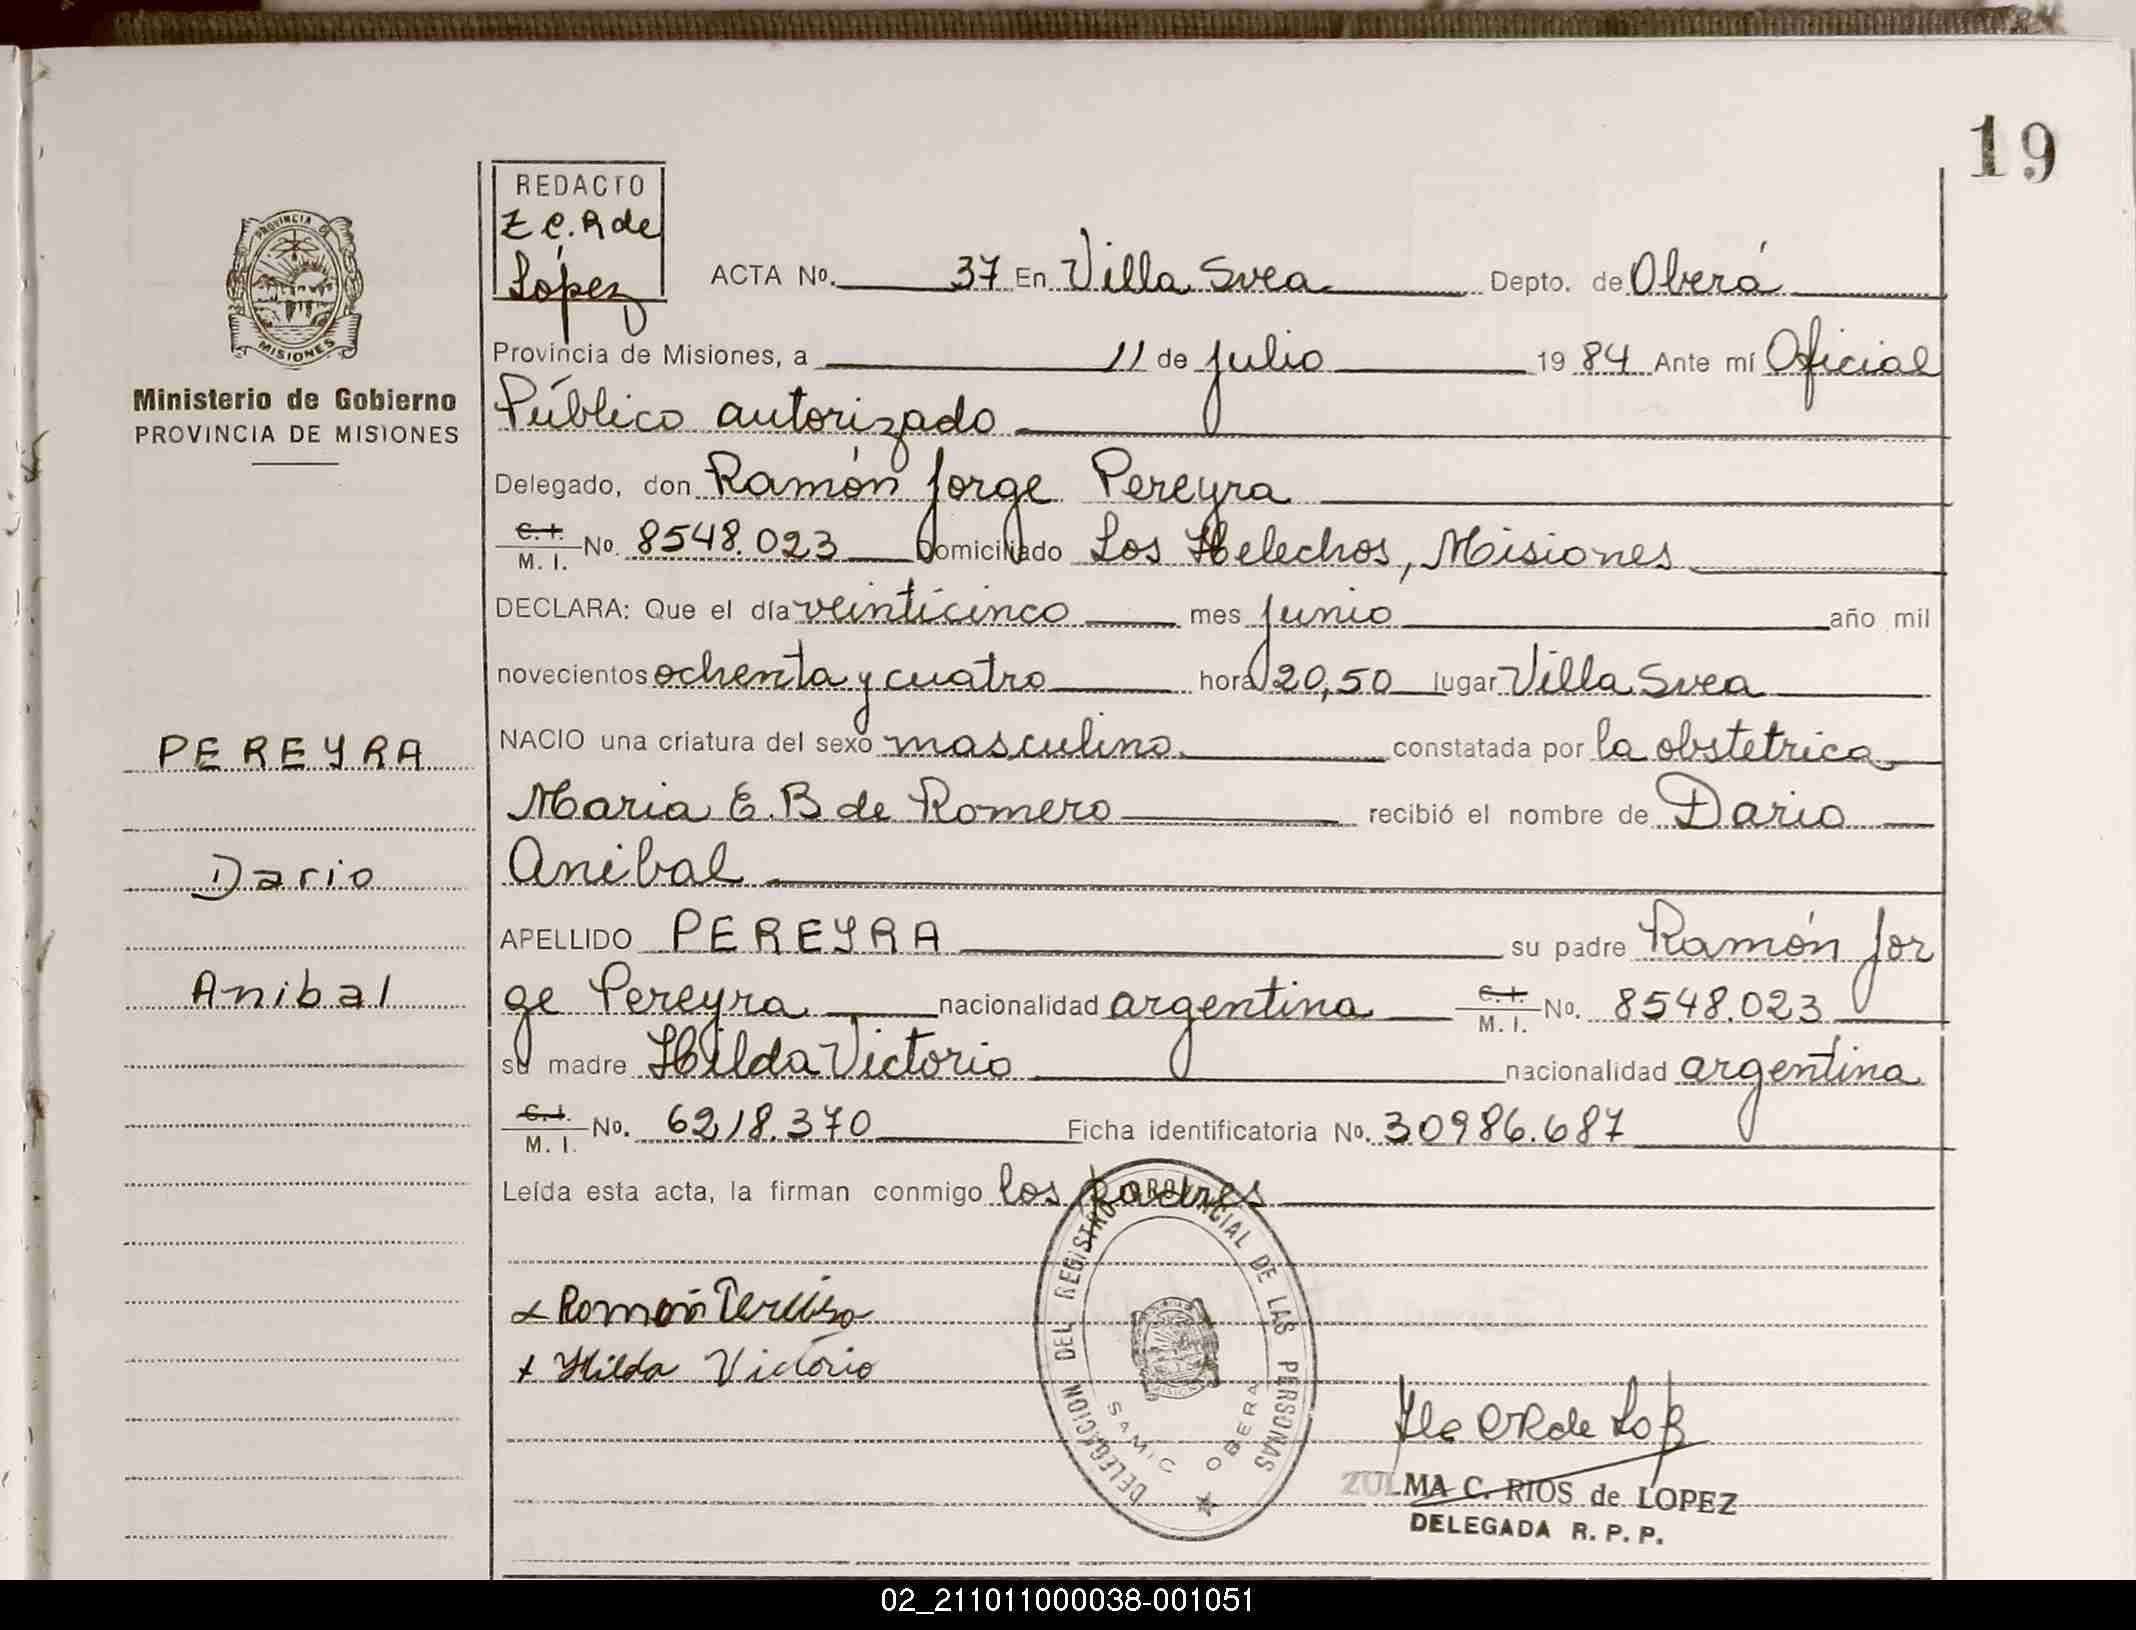 19
REDACTO
Z C. R de
López
PROVINCIA DE
MISIONES
Ministerio de Gobierno
PROVINCIA DE MISIONES
ACTA Nº. 37 En Villa Svea Depto. de Oberá
Provincia de Misiones, a 11 de julio 19 84 Ante mí Oficial
Público autorizado
Delegado, don Ramón Jorge Pereyra
C. I. M. I. Nº. 8548.023 Domiciliado Los Helechos, Misiones
DECLARA: Que el día veinticinco mes junio año mil
novecientos ochenta y cuatro hora 20,50 lugar Villa Svea
NACIO una criatura del sexo masculino constatada por la obstetrica
Maria E. B de Romero recibió el nombre de Dario
Anibal
APELLIDO PEREYRA su padre Ramón Jor
ge Pereyra nacionalidad argentina C. I. M. I. Nº. 8548.023
su madre Hilda Victorio nacionalidad argentina
C. I. M. I. Nº. 6218.370 Ficha identificatoria Nº. 30986.687
Leída esta acta, la firman conmigo los padres
PEREYRA
Dario
Anibal
x Ramón Pereyra
x Hilda Victorio
DELEGACION DEL REGISTRO PROVINCIAL DE LAS PERSONAS
SAMIC OBERA
MISIONES
ZULMA C. RIOS de LOPEZ
DELEGADA R. P. P.
02_211011000038-001051